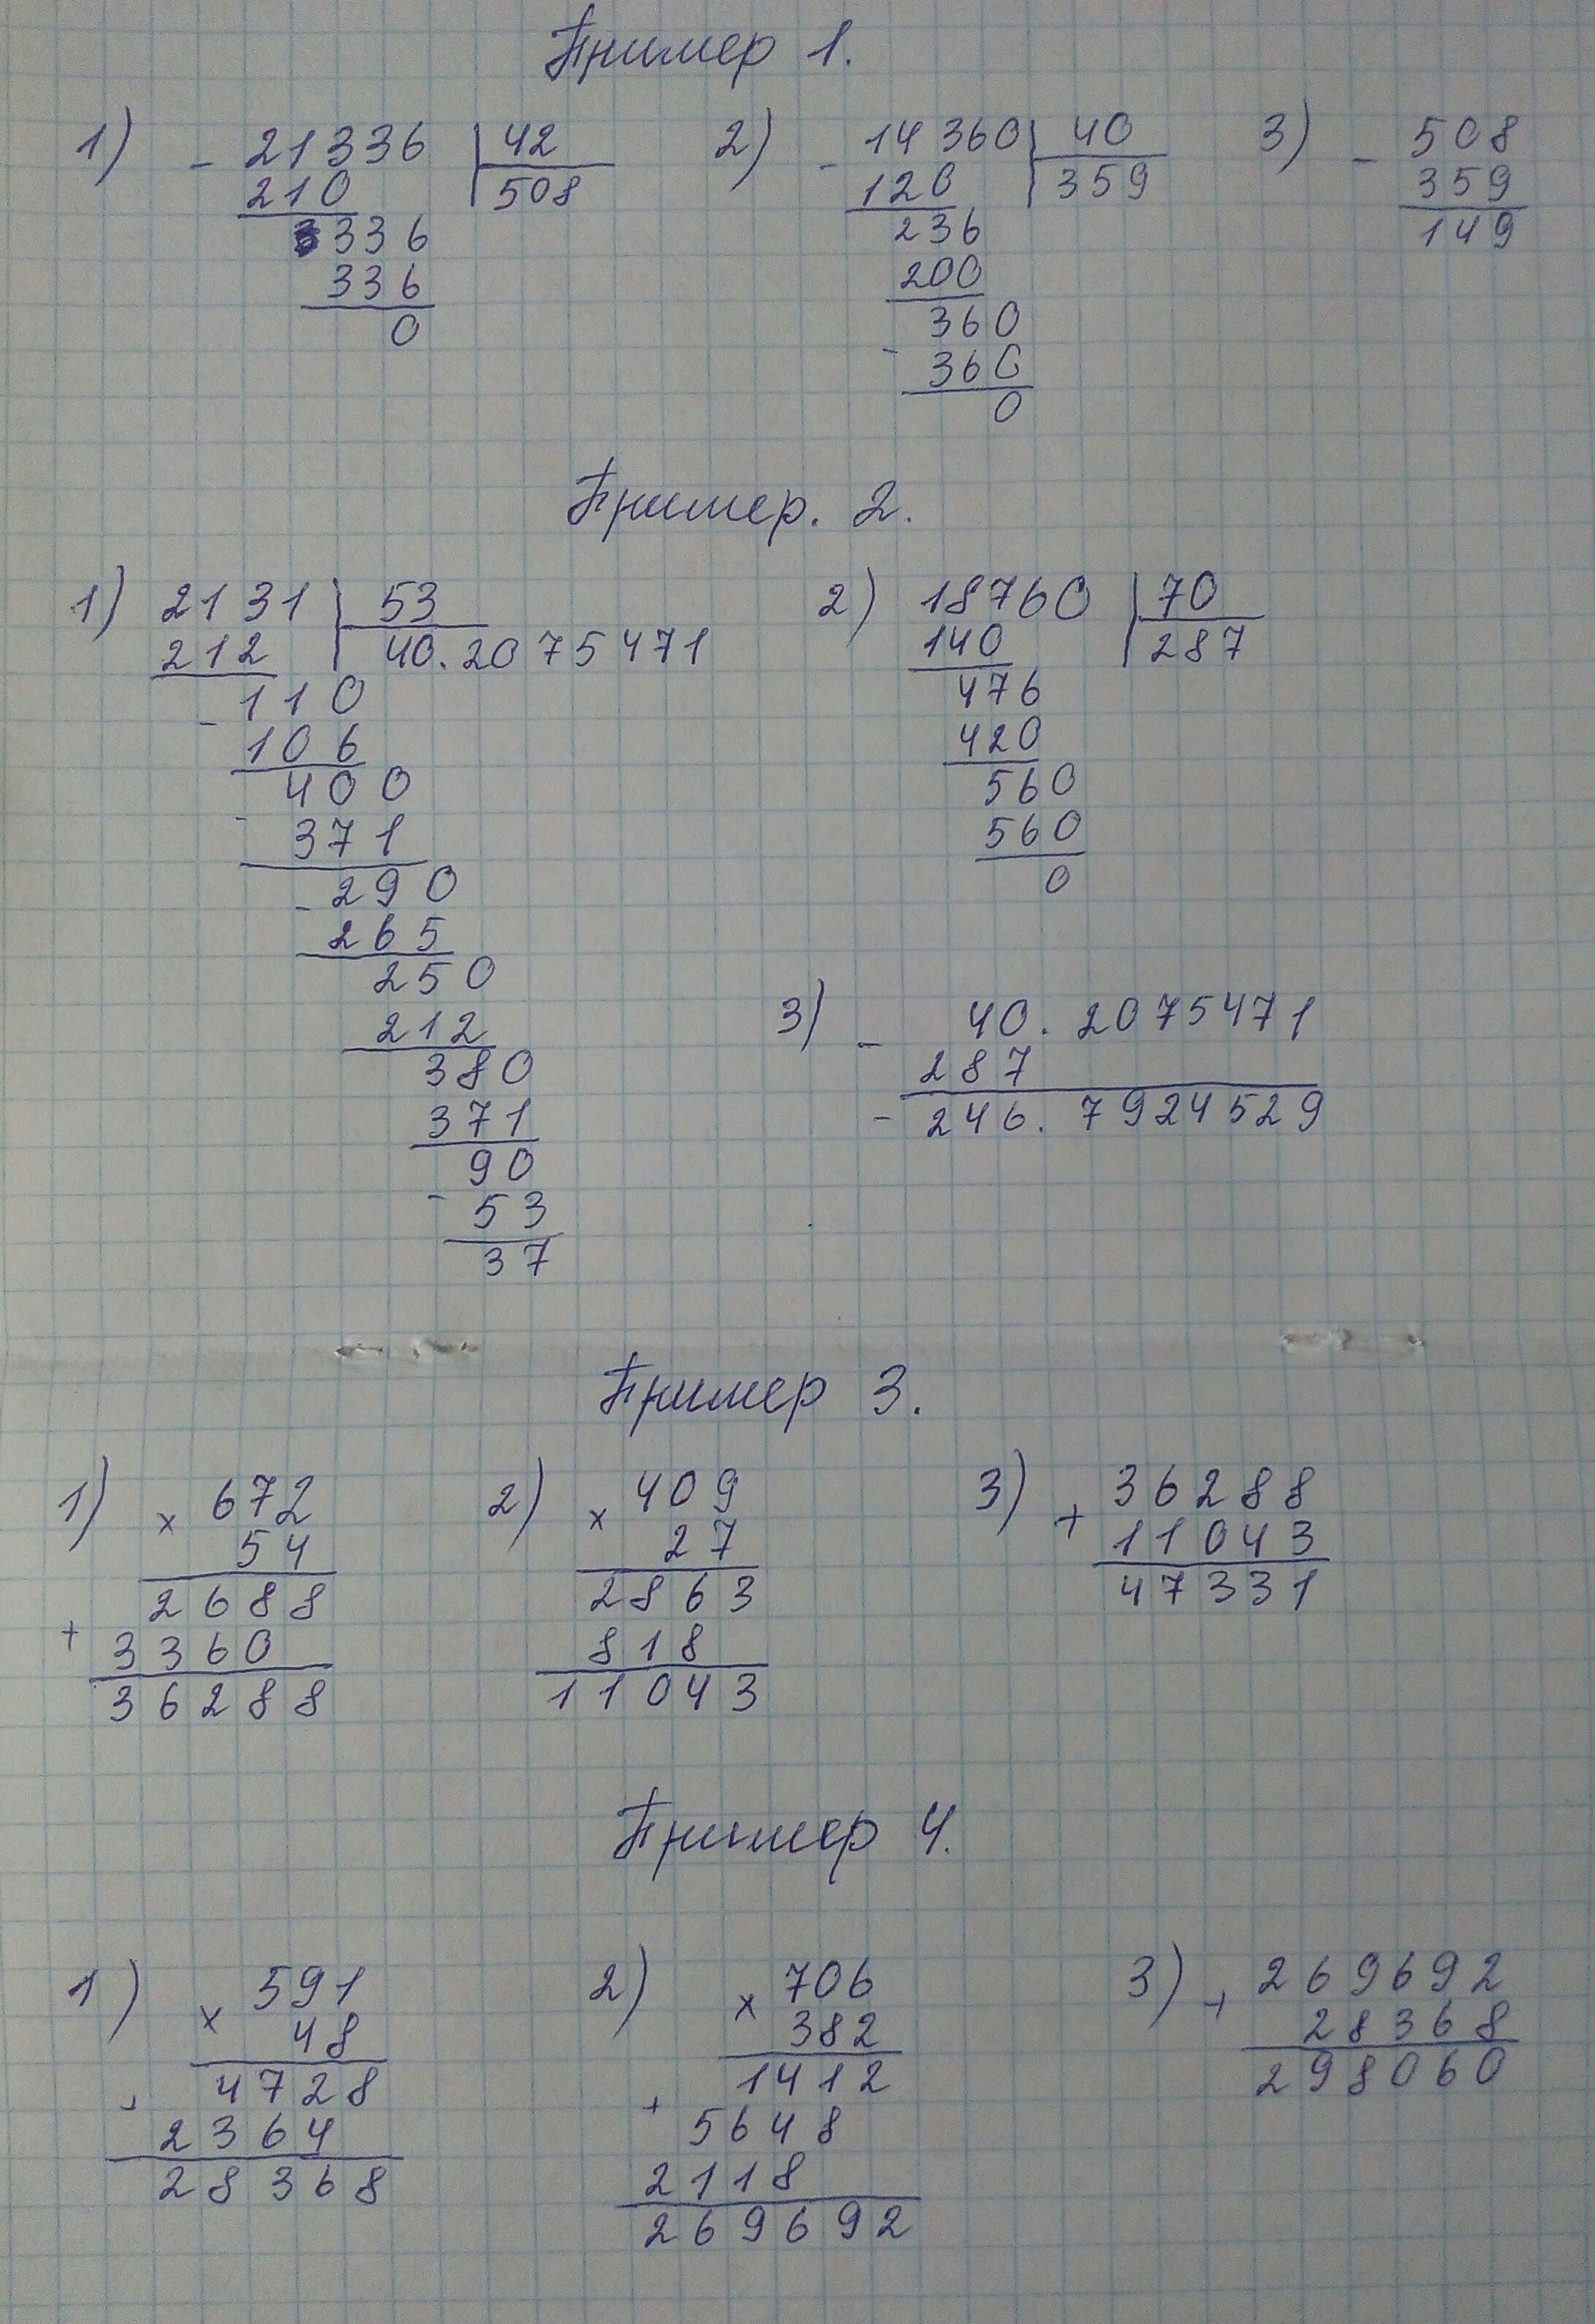 Пример 1.
1) - 21336 | 42
210 | 508
336
336
0
2) - 14360 | 40
120 | 359
236
200
360
- 360
0
3) - 508
359
149
Пример. 2.
1) 2131 | 53
212 | 40.2075471
- 110
106
400
- 371
290
- 265
250
212
380
371
90
- 53
37
2) 18760 | 70
140 | 287
476
420
560
560
0
3) - 40.2075471
287
- 246.7924529
Пример 3.
1) x 672
54
2688
+ 3360
36288
2) x 409
27
2863
818
11043
3) + 36288
11043
47331
Пример 4.
1) x 591
48
4728
+ 2364
28368
2) x 706
382
1412
+ 5648
2118
269692
3) + 269692
28368
298060